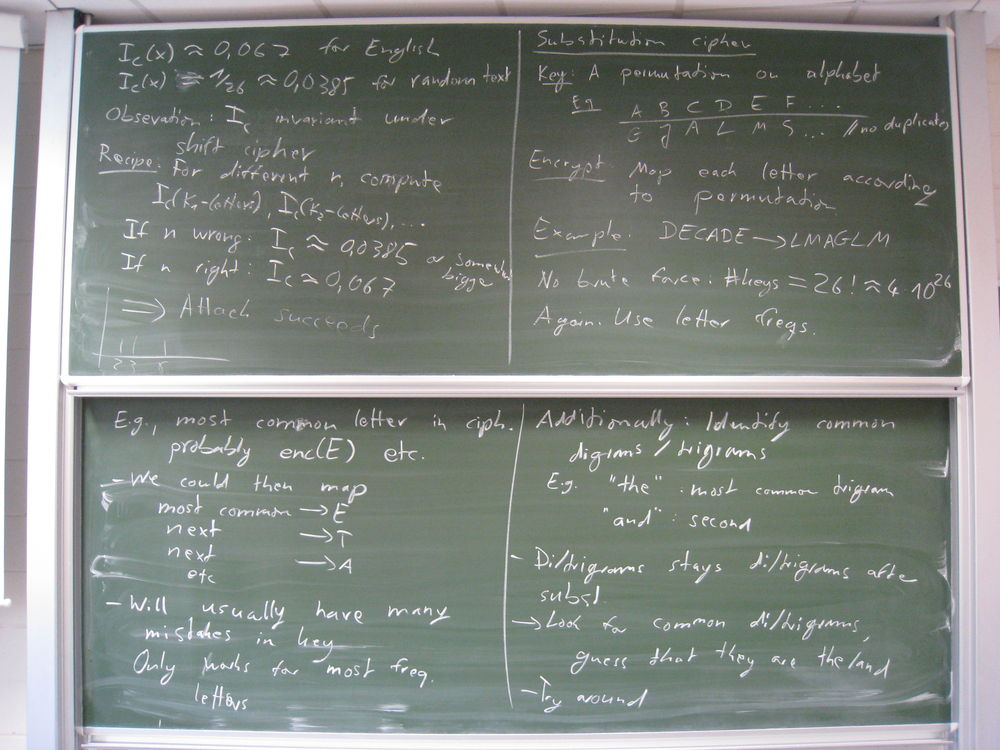 I_c(x) ≈ 0,067 for English
I_c(x) = 1/26 ≈ 0,0385 for random text
Obsevation: I_c invariant under
shift cipher
Recipe: For different n, compute
I_c(K₁-letters), I_c(K₂-letters), ...
If n wrong: I_c ≈ 0,0385 or somewhat
bigger
If n right: I_c ≈ 0,067
⇒ Attack succeeds
Substitution cipher
Key: A permutation on alphabet
Eg A B C D E F ...
G J A L M S ... // no duplicates
Encrypt: Map each letter according
to permutation
Example: DECADE → LMAGLM
No brute force: #keys = 26! ≈ 4·10²⁶
Again: Use letter freqs.
E.g., most common letter in ciph.
probably enc(E) etc.
- We could then map
most common → E
next → T
next → A
etc
- Will usually have many
mistakes in key
Only works for most freq.
letters
Additionally: Identify common
digrams / trigrams
E.g. "the": most common trigram
"and": second
- Di/trigrams stays di/trigrams after
subst.
→ Look for common di/trigrams,
guess that they are the/and
- Try around